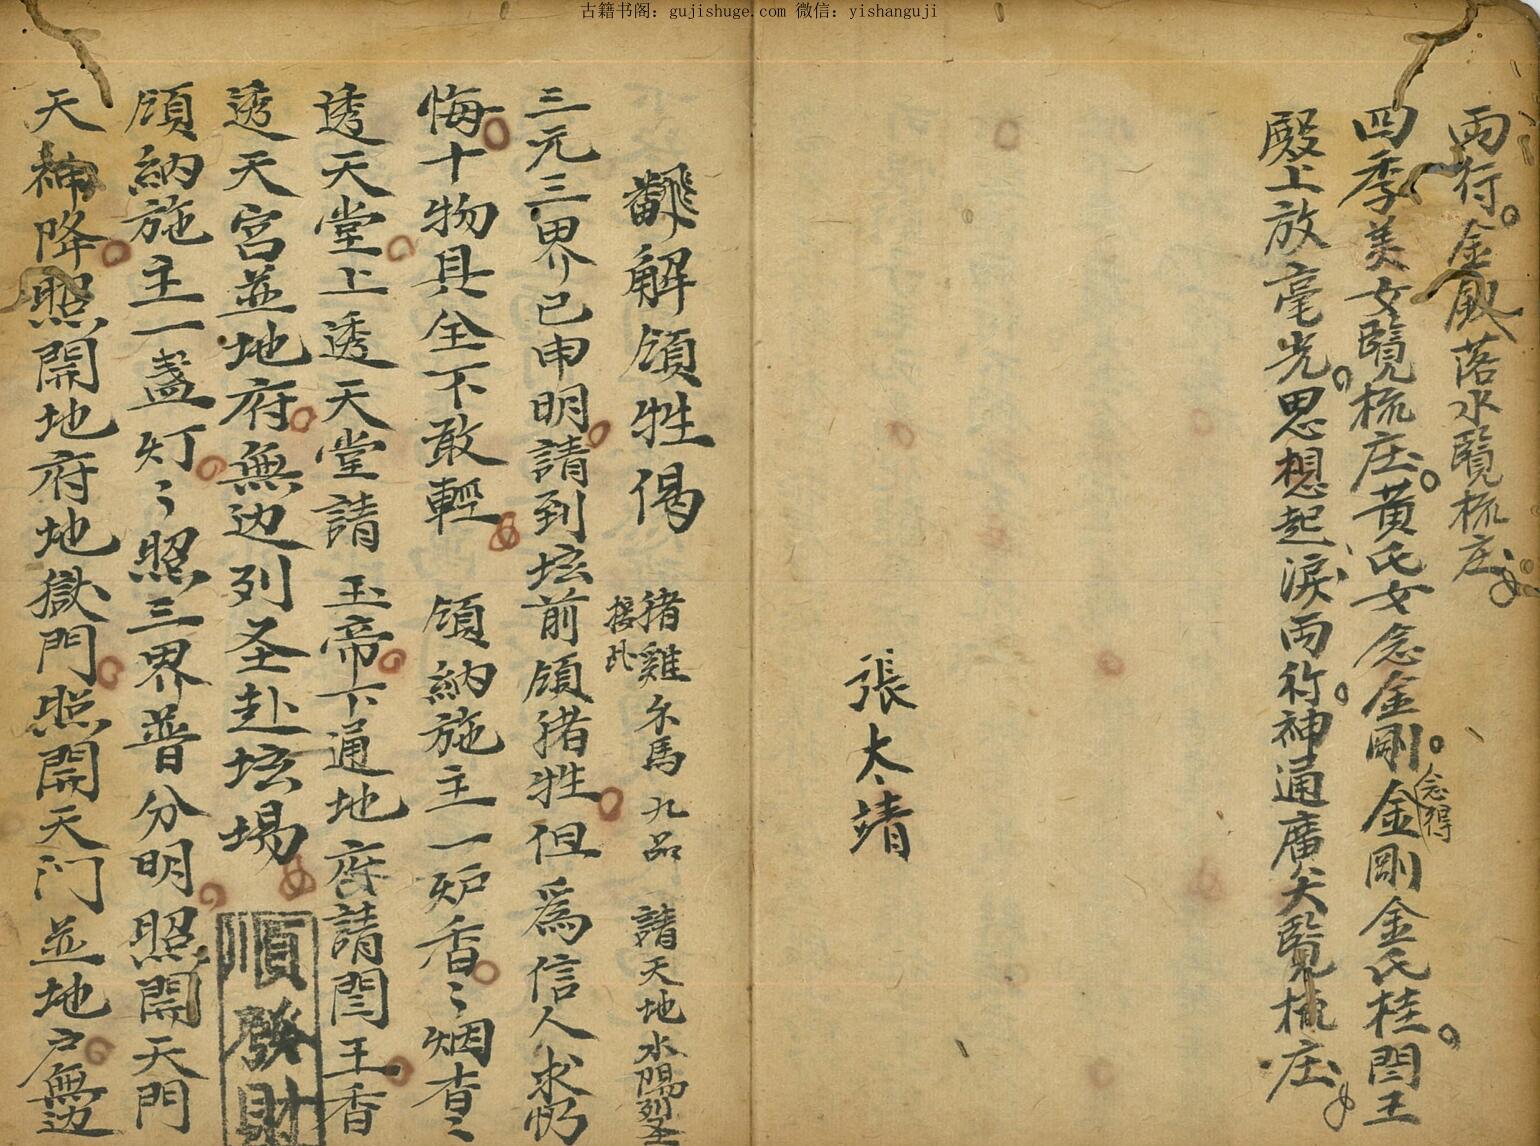 古籍书阁：gujishuge.com 微信：yishanguji
兩行金殿落水覽梳庄
四季美女覽梳庄黃氏女念金剛念得金剛金氏桂閆王
殿上放毫光思想起淚兩行神通廣大覽梳庄
張太靖
解領牲偈
猪雞 馬九品 請天地水陽列圣
接此
三元三界已申明請到坛前領猪牲但爲信人求
悔十物具全不敢輕 領納施主一炉香〻烟
透天堂上透天堂請玉帝下通地府請閆王香
透天宫並地府無边列圣赴坛場
領納施主一盞灯〻照三界普分明照開天門
天神降照開地府地獄門照開天门並地户無边
順發財